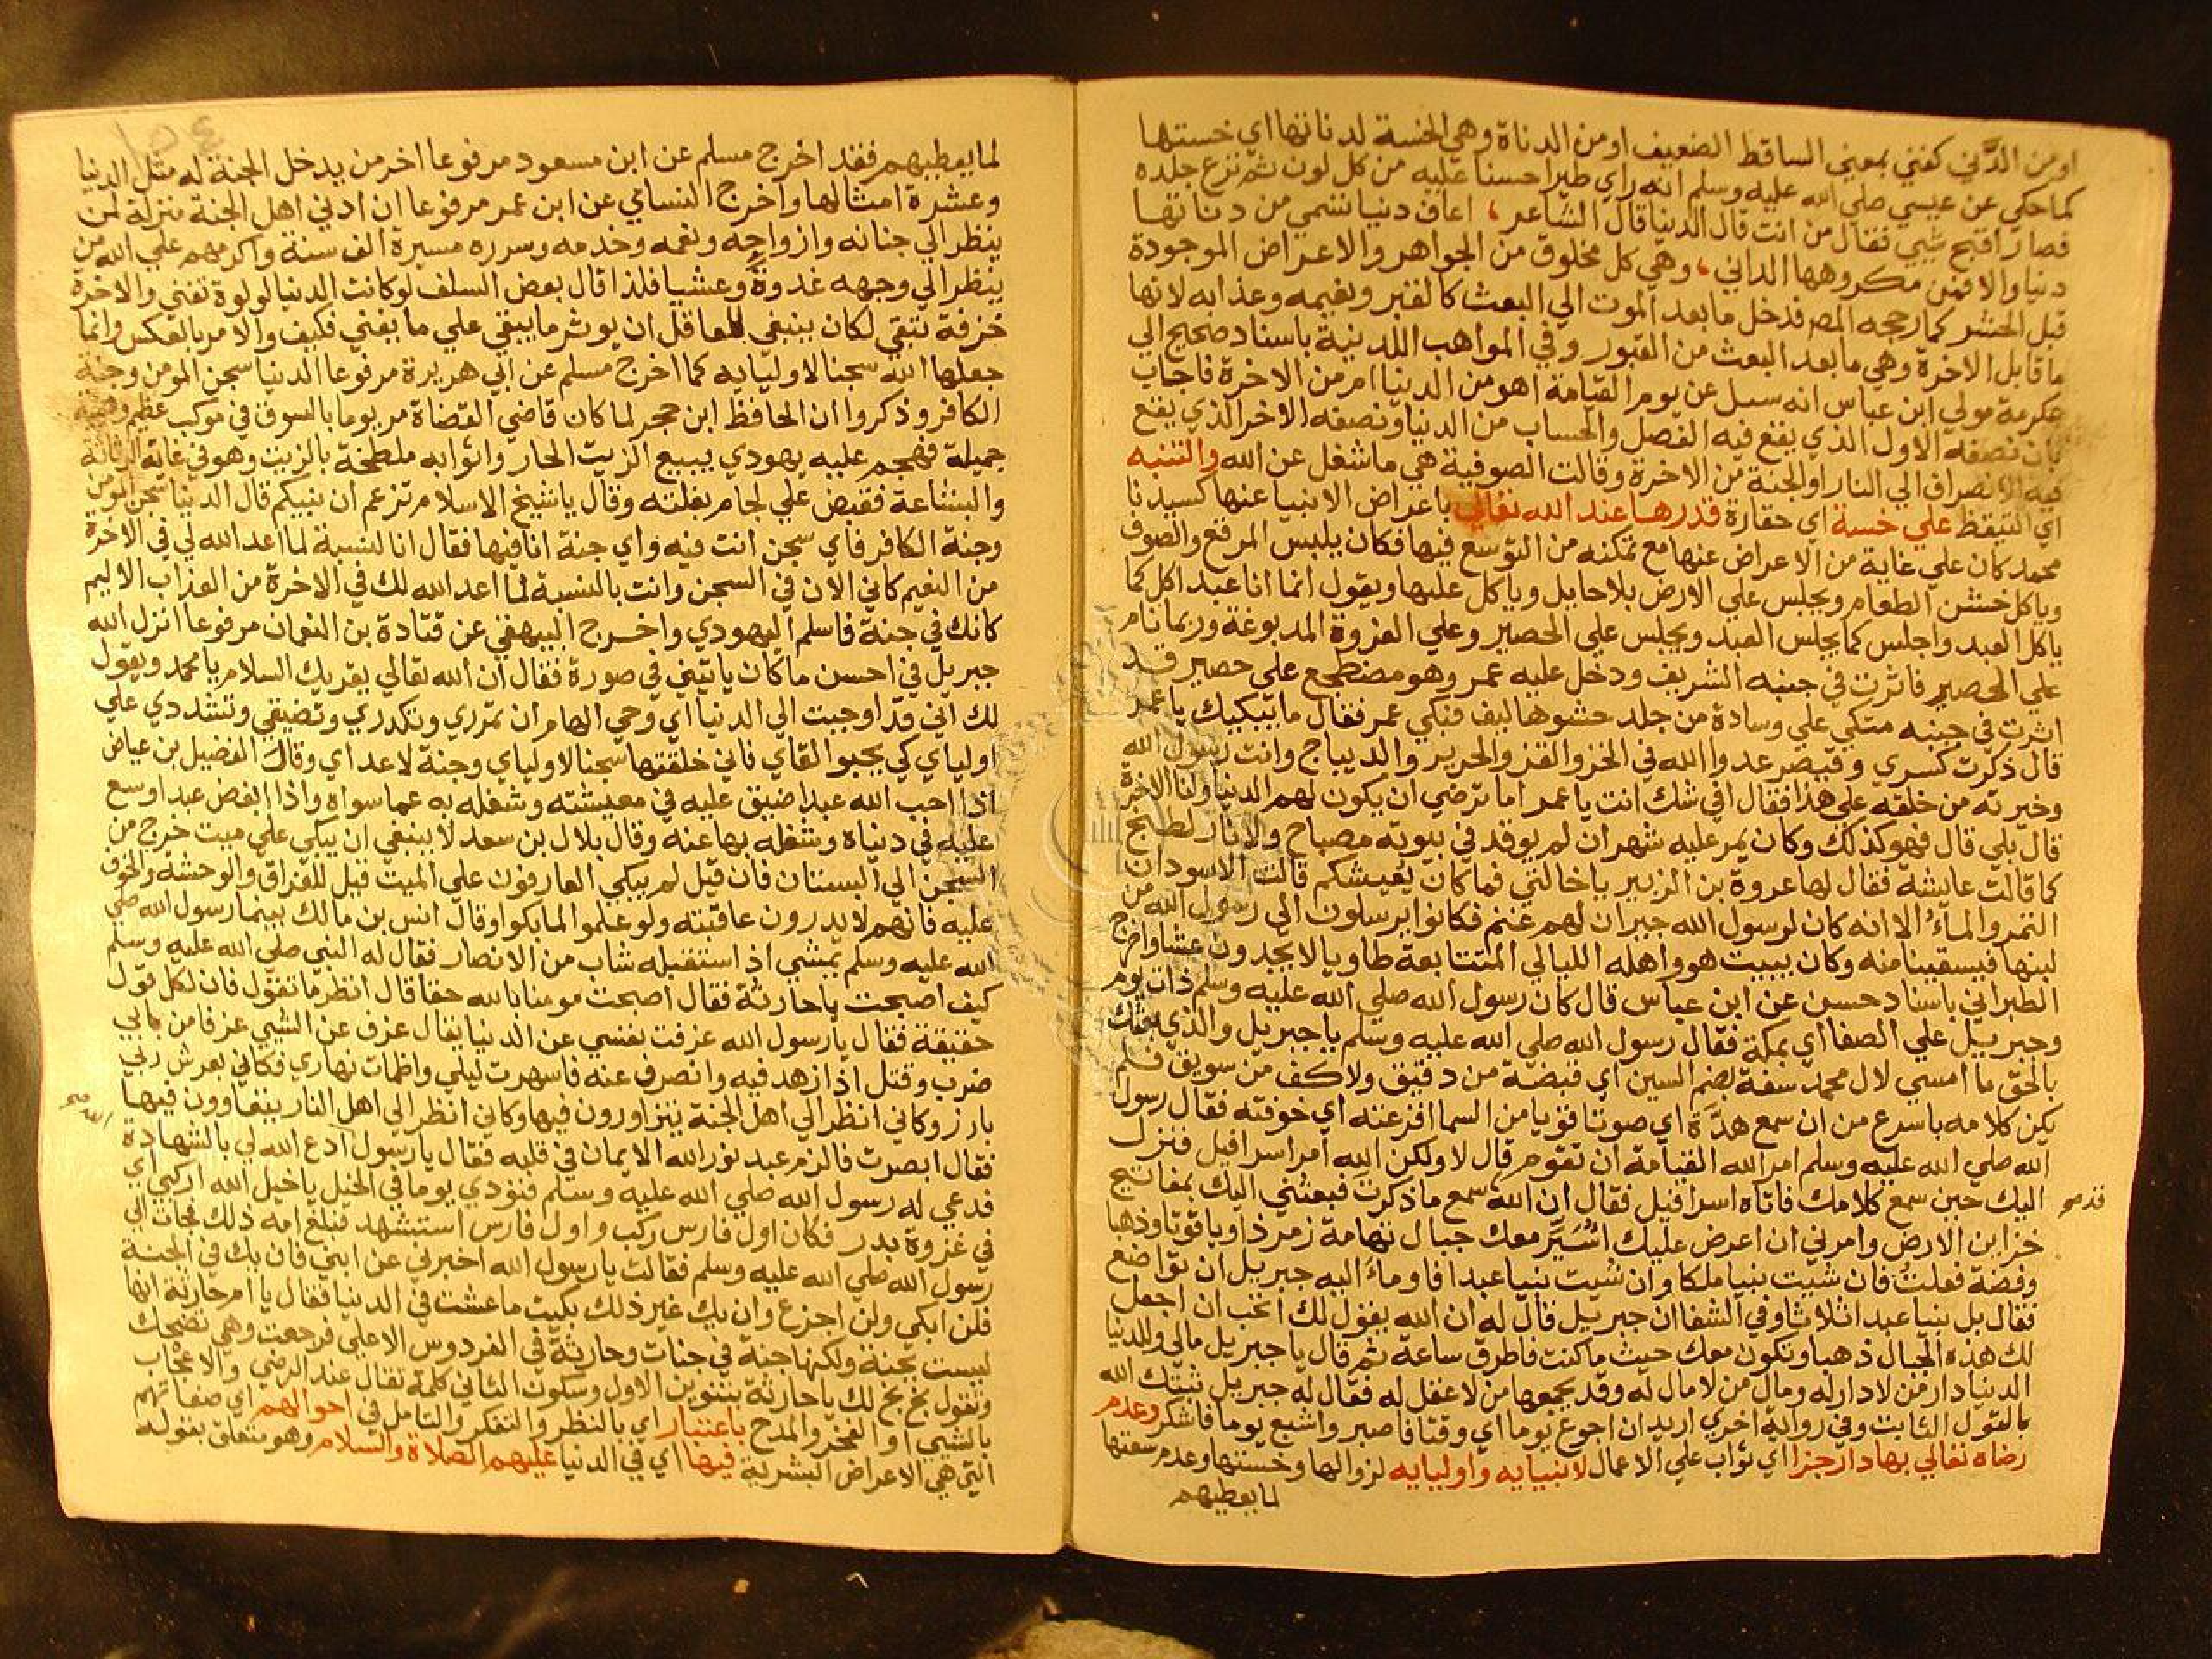 او من الدَّني كفني بمعني الساقط الضعيف او من الدناة وهي الخسة لدناتها اي خستها
كما حكي عن عيسي صلي الله عليه وسلم انه راي طيرا حسنا عليه من كل لون ثم نزع جلده
فصار اقبح شيي فقال من انت قال الدنيا قال الشاعر، اعاف دنيا تسمي من دناتها
دنيا والا فمن مكروهها الداني، وهي كل مخلوق من الجواهر والاعراض الموجودة
قبل الحشر كما رجحه المص فدخل ما بعد الموت الي البعث كالقبر ونعيمه وعذابه لانها
ما قابل الاخرة وهي ما بعد البعث من القبور وفي المواهب اللدنية باسناد صحيح الي
عكرمة مولي ابن عباس انه سيل عن يوم القيامة اهو من الدنيا ام من الاخرة فاجاب
بان نصفه الاول الذي يقع فيه الفصل والحساب من الدنيا ونصفه الاخر الذي يقع
فيه الانصراف الي النار او الجنة من الاخرة وقالت الصوفية هي ما شغل عن الله والتنبه
اي التيقظ علي خسة اي حقارة قدرها عند الله تعالي باعراض الانبيا عنها كسيدنا
محمد كان علي غاية من الاعراض عنها مع تمكنه من التوسع فيها فكان يلبس المرقع والصوف
وياكل خشن الطعام ويجلس علي الارض بلا حايل وياكل عليها ويقول انما انا عبد اكل كما
ياكل العبد واجلس كما يجلس العبد ويجلس علي الحصير وعلي الفروة المدبوغة وربما نام
علي الحصير فاثرت في جنبه الشريف ودخل عليه عمر وهو مضطجع علي حصير قد
اثرت في جنبه متكي علي وسادة من جلد حشوها ليف فبكي عمر فقال ما يبكيك يا عمر
قال ذكرت كسري وقيصر عدوا الله في الخز والقز والحرير والديباج وانت رسول الله
وخيرته من خلقه علي هذا فقال افي شك انت يا عمر اما ترضي ان يكون لهم الدنيا ولنا الاخرة
قال بلي قال فهو كذلك وكان يمر عليه شهران لم يوقد في بيوته مصباح ولا نار لطبخ
كما قالت عايشة فقال لها عروة بن الزبير يا خالتي فما كان يُعيشكم قالت الاسودان
التمر والماءُ الا انه كان لرسول الله جيران لهم غنم فكانوا يرسلون الي رسول الله من
لبنها فيسقينا منه وكان يبيت هو واهله الليالي المتتابعة طاويا لا يجدون عشا واخرج
الطبراني باسناد حسن عن ابن عباس قال كان رسول الله صلي الله عليه وسلم ذات يوم
وجبريل علي الصفا اي بمكة فقال رسول الله صلي الله عليه وسلم يا جبريل والذي بعثك
بالحق ما امسي لال محمد سفة بضم السين اي قبضة من دقيق ولا كف من سويق فلم
يكن كلامه باسرع من ان سمع هدَّة اي صوتا قويا من السما افزعته اي خوفته فقال رسول
الله صلي الله عليه وسلم امر الله القيامة ان تقوم قال لا ولكن الله امر اسرافيل فنزل
اليك حين سمع كلامك فاتاه اسرافيل فقال ان الله سمع ما ذكرت فبعثني اليك بمفاتيح
خزاين الارض وامرني ان اعرض عليك اُسَيِّر معك جبال تهامة زمرذا وياقوتا وذهبا
وفضة فعلتُ فان شيت نبيا ملكا وان شيت نبيا عبدا فاومأ اليه جبريل ان تواضع
فقال بل نبيا عبدا ثلاثا وفي الشفا ان جبريل قال له ان الله يقول لك اتحب ان اجعل
لك هذه الجبال ذهبا وتكون معك حيث ما كنت فاطرق ساعة ثم قال يا جبريل مالي وللدنيا
الدنيا دار من لا دار له ومال من لا مال له وقد يجمعها من لا عقل له فقال له جبريل ثبتك الله
بالقول الثابت وفي رواية اخري اريد ان اجوع يوما اي وقتا فاصبر واشبع يوما فاشكر وعدم
رضاه تعالي بها دار جزا اي ثواب علي الاعمال لانبيايه واوليايه لزوالها وخستها وعدم سعتها
لما يعطيهم
لما يعطيهم فقد اخرج مسلم عن ابن مسعود مرفوعا اخر من يدخل الجنة له مثل الدنيا
وعشرة امثالها واخرج النساي عن ابن عمر مرفوعا ان ادني اهل الجنة منزلة لمن
ينظر الي جنانه وازواجه ونعمه وخدمه وسرره مسيرة الف سنة واكرمهم علي الله من
ينظر الي وجهه غدوةً وعشيا فلذا قال بعض السلف لو كانت الدنيا لولوة تفني والاخرة
خزفة تبقي لكان ينبغي للعاقل ان يوثر ما يبقي علي ما يفني فكيف والامر بالعكس وانما
جعلها الله سجنا لاوليايه كما اخرج مسلم عن ابي هريرة مرفوعا الدنيا سجن المومن وجنة
الكافر وذكروا ان الحافظ ابن حجر لما كان قاضي القضاة مر يوما بالسوق في موكب عظيم وهيئة
جميلة فهجم عليه يهودي يبيع الزيت الحار واثوابه ملطخة بالزيت وهو في غاية الرثاثة
والبشاعة فقبض علي لجام بغلته وقال يا شيخ الاسلام تزعم ان نبيكم قال الدنيا سجن المومن
وجنة الكافر فاي سجن انت فيه واي جنة انا فيها فقال انا لنسبة لما اعد الله لي في الاخرة
من النعيم كاني الان في السجن وانت بالنسبة لما اعد الله لك في الاخرة من العذاب الاليم
كانك في جنة فاسلم اليهودي واخرج البيهقي عن قتادة بن النعمان مرفوعا انزل الله
جبريل في احسن ما كان ياتيني في صورة فقال ان الله تعالي يقريك السلام يا محمد ويقول
لك اني قد اوجبت الي الدنيا اي وحي الهام ان تمرري وتكدري وتضيقي وتشددي علي
اولياي كي يحبوا لقاي فاني خلقتها سجنا لاولياي وجنة لاعداي وقال الفضيل بن عياض
اذا احب الله عبدا ضيق عليه في معيشته وشغله به عما سواه واذا ابغض عبدا وسع
عليه في دنياه وشغله بها عنه وقال بلال بن سعد لا ينبغي ان يبكي علي ميت خرج من
السجن الي البستان فان قيل لم يبكي العارفون علي الميت قيل للفراق والوحشة والخوف
عليه فانهم لا يدرون عاقبته ولو علموا لما بكوا وقال انس بن مالك بينما رسول الله صلي
الله عليه وسلم يمشي اذ استقبله شاب من الانصار فقال له النبي صلي الله عليه وسلم
كيف اصبحت يا حارثة فقال اصبحت مومنا بالله حقا قال انظر ما تقول فان لكل قول
حقيقة فقال يا رسول الله عزفت نفسي عن الدنيا يقال عزف عن الشيي عزفا من بابي
ضرب وقتل اذا زهد فيه وانصرف عنه فاسهرت ليلي واظمات نهاري فكاني بعرش ربي
بارز وكاني انظر الي اهل الجنة يتزاورون فيها وكاني انظر الي اهل النار يتعاوون فيها
فقال ابصرت فالزم عبد نور الله الايمان في قلبه فقال يا رسول ادع الله لي بالشهادة
الله صح
فدعي له رسول الله صلي الله عليه وسلم فنودي يوما في الخيل يا خيل الله اركبي اي
في غزوة بدر فكان اول فارس ركب واول فارس استشهد فبلغ امه ذلك فجات الي
رسول الله صلي الله عليه وسلم فقالت يا رسول الله اخبرني عن ابني فان يك في الجنة
فلن ابكي ولن اجزع وان يك غير ذلك بكيت ما عشت في الدنيا فقال يا ام حارثة انها
ليست بجنة ولكنها جنة في جنات وحارثة في الفردوس الاعلي فرجعت وهي تضحك
وتقول بخ بخ لك يا حارثة بتنوين الاول وسكون الثاني كلمة تقال عند الرضي والاعجاب
بالشيي او الفخر والمدح باعتبار اي بالنظر والتفكر والتامل في احوالهم اي صفاتهم
التي هي الاعراض البشرية فيها اي في الدنيا عليهم الصلاة والسلام وهو متعلق بقوله